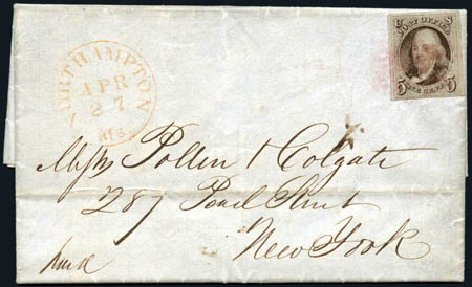 NORTHAMPTON
APR
27
Ms.
POST OFFICE
U S
5 5
FIVE CENTS
Messrs Pollen & Colgate
287 Pearl Street
New York